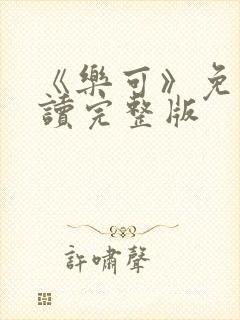 《樂可》免
讀完整版
許嘯聲